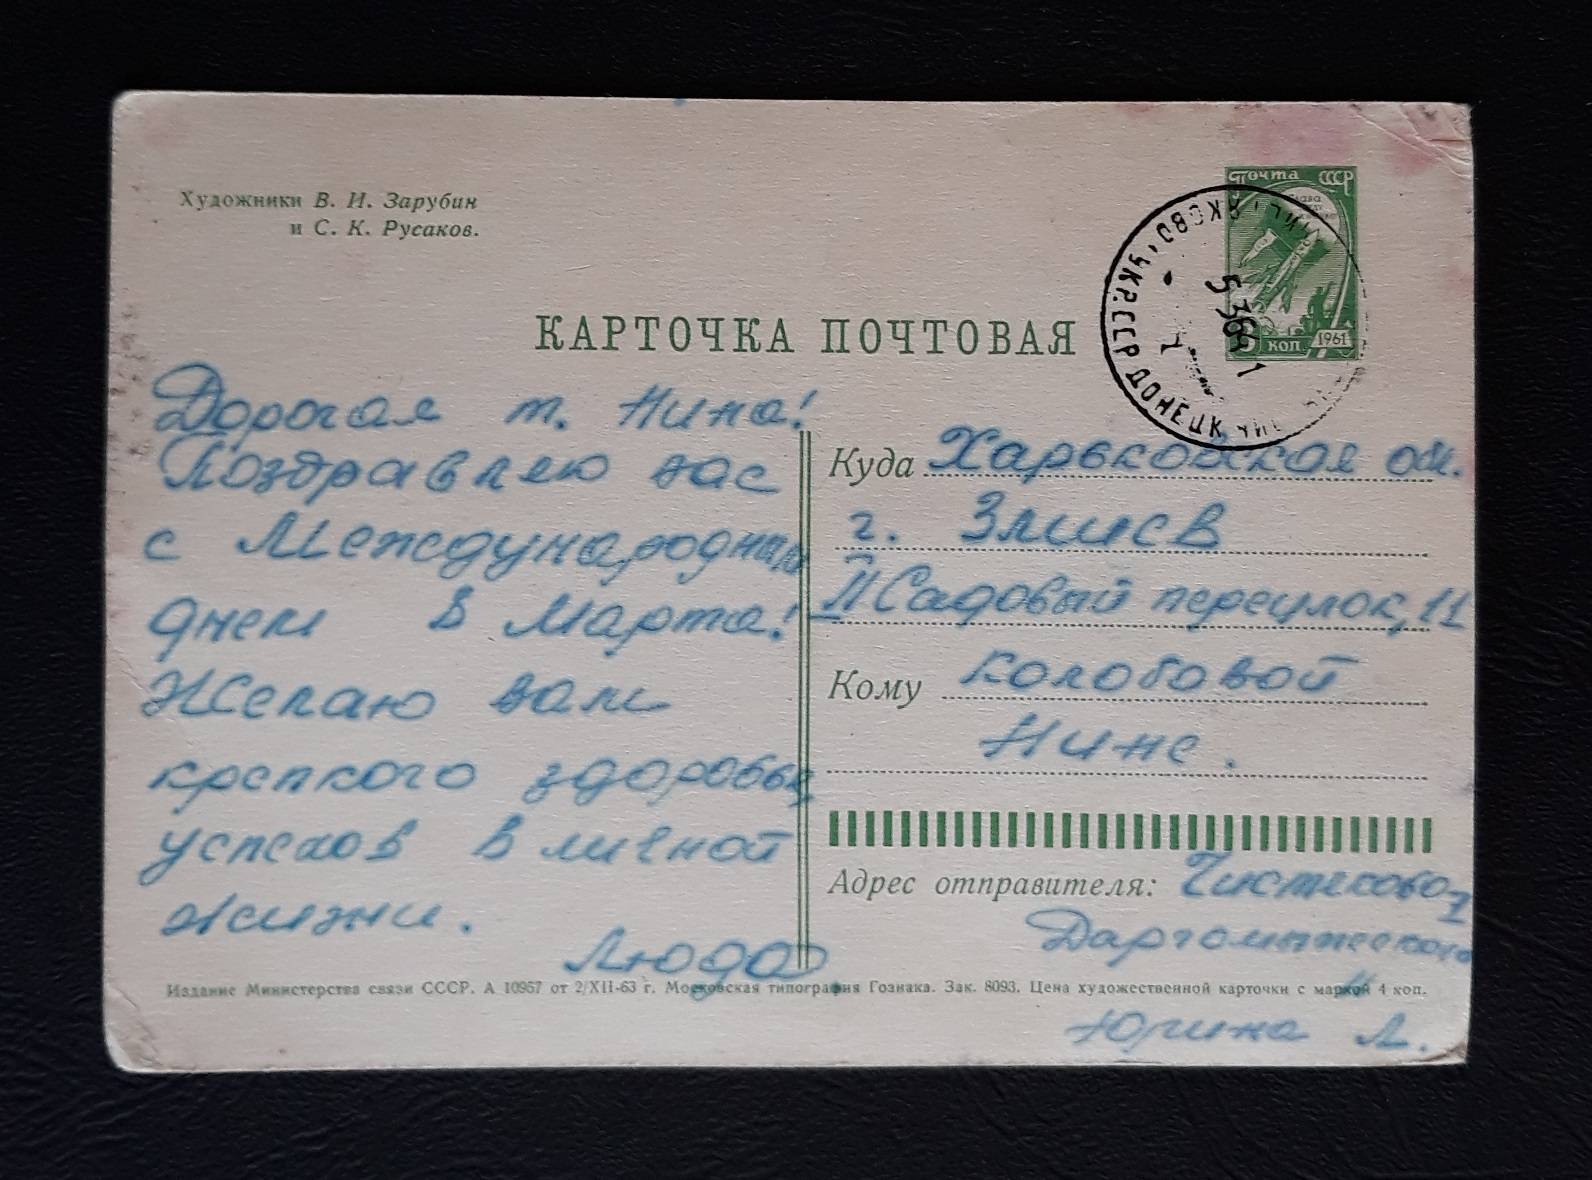 Художники В. И. Зарубин
и С. К. Русаков.
Почта СССР
коп 1961
УКР.ССР ДОНЕЦК
КАРТОЧКА ПОЧТОВАЯ
Дорогая т. Нина!
Поздравляю вас
с Международным
днем 8 марта!
Желаю вам
крепкого здоровья
успехов в личной
жизни.
Люда
Куда Харьковская
г. Змиев
II Садовый переулок, 11
Кому Колобовой
Нине.
Адрес отправителя: Чистяково
Даргомыжского
4
Юрина Л.
Издание Министерства связи СССР. А 10957 от 2/XII-63 г. Московская типография Гознака. Зак. 8093. Цена художественной карточки с маркой 4 коп.